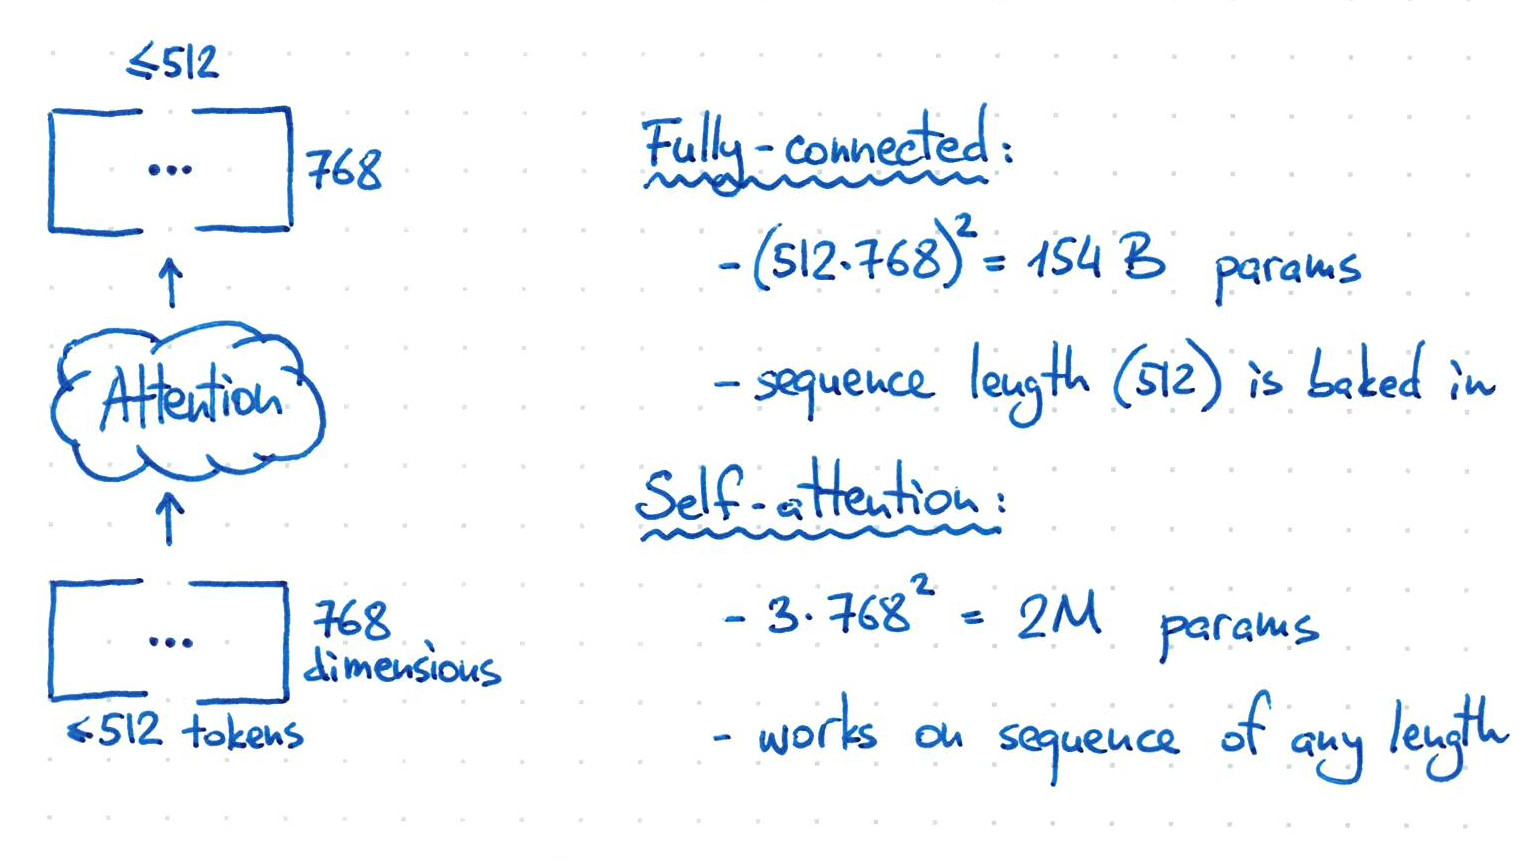 ≤512
768
Attention
768
dimensions
≤512 tokens
Fully-connected:
- (512·768)² = 154 B params
- sequence length (512) is baked in
Self-attention:
- 3·768² = 2M params
- works on sequence of any length